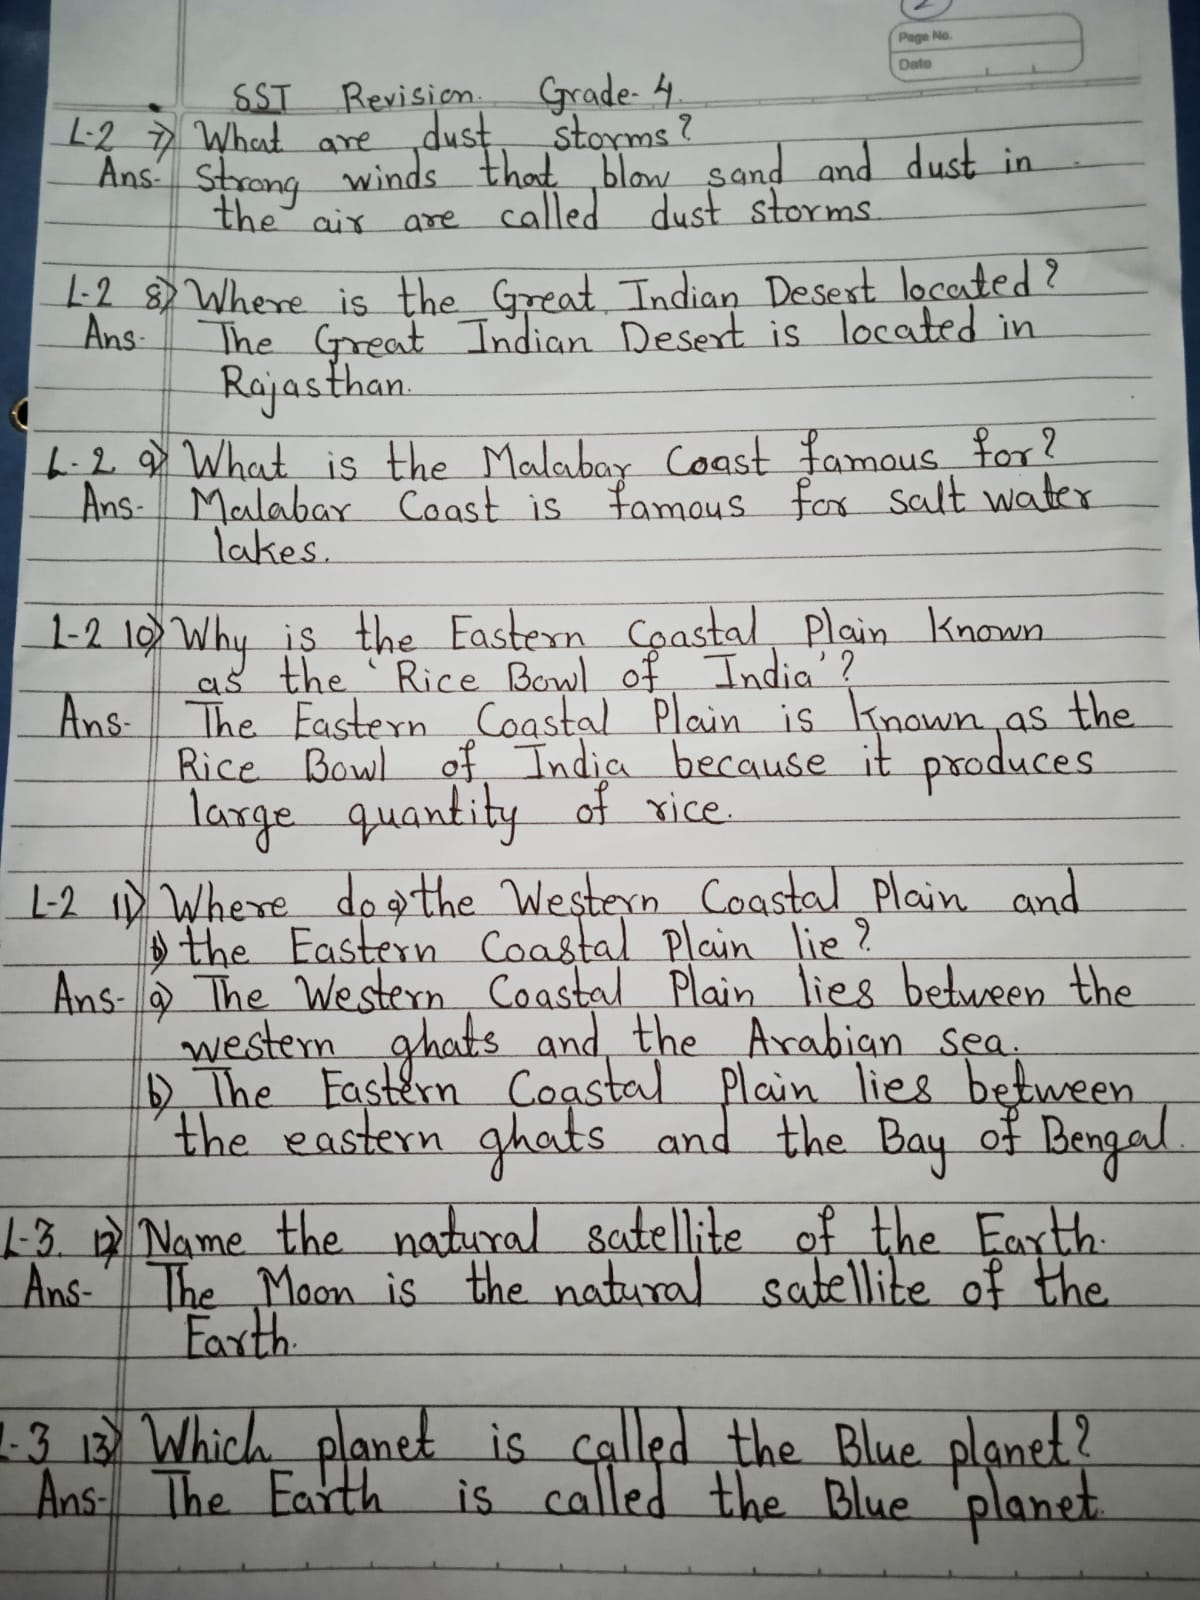 2
Page No.
Date
SST Revision. Grade-4.
L-2 7) What are dust storms?
Ans- Strong winds that blow sand and dust in
the air are called dust storms.
L-2 8) Where is the Great Indian Desert located?
Ans- The Great Indian Desert is located in
Rajasthan.
L-2 9) What is the Malabar Coast famous for?
Ans- Malabar Coast is famous for salt water
lakes.
L-2 10) Why is the Eastern Coastal Plain known
as the 'Rice Bowl of India'?
Ans- The Eastern Coastal Plain is known as the
Rice Bowl of India because it produces
large quantity of rice.
L-2 11) Where do a) the Western Coastal Plain and
b) the Eastern Coastal Plain lie?
Ans- a) The Western Coastal Plain lies between the
western ghats and the Arabian sea.
b) The Eastern Coastal Plain lies between
the eastern ghats and the Bay of Bengal.
L-3. 12) Name the natural satellite of the Earth.
Ans- The Moon is the natural satellite of the
Earth.
L-3 13) Which planet is called the Blue planet?
Ans- The Earth is called the Blue planet.